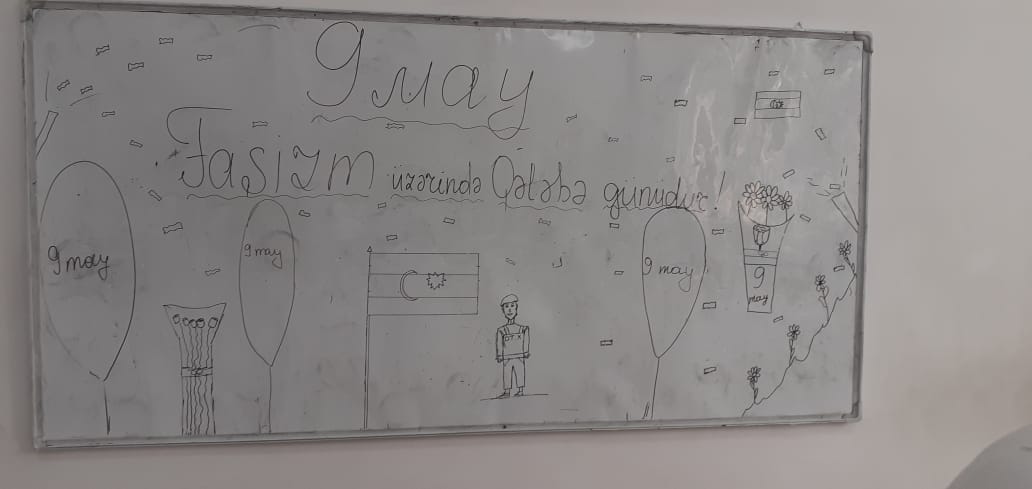 9 may
Faşizm üzərində Qələbə günüdür!
9 may
9 may
9 may
9
may